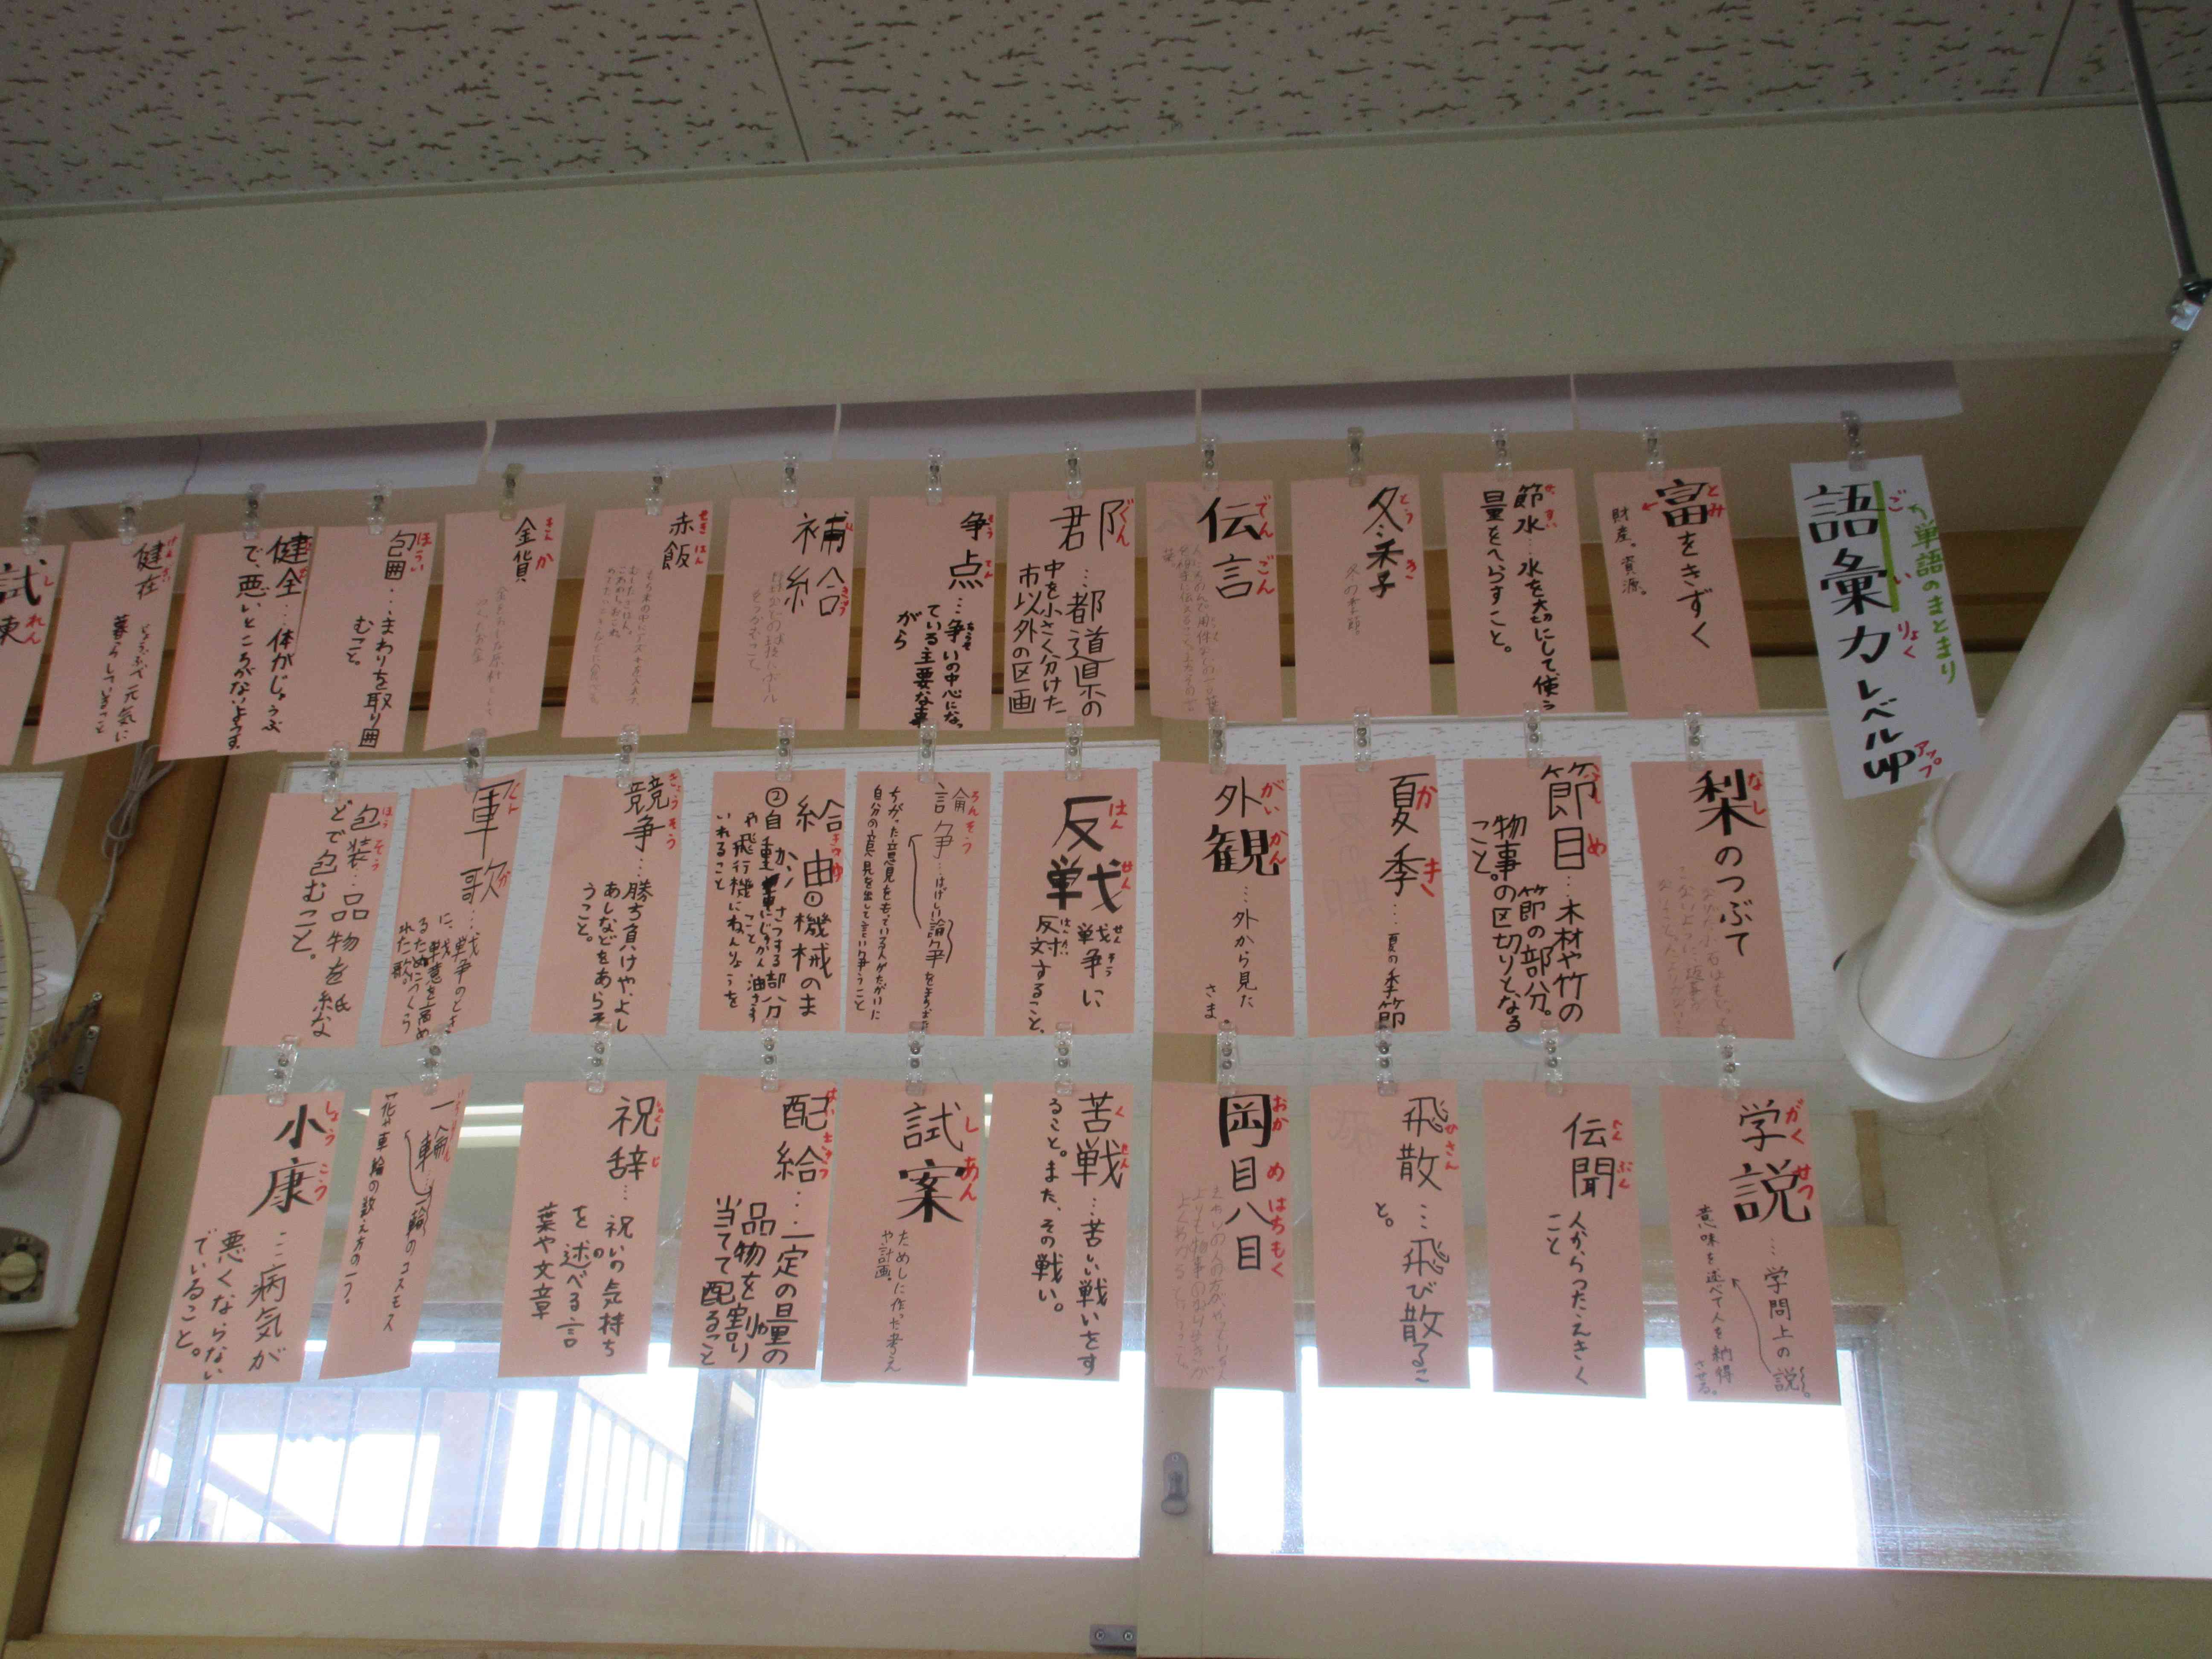 語彙力レベルup
ご い りょく
アップ
単語のまとまり
富をきずく
とみ
財産。資源。
節水…水を大切にして使う
量をへらすこと。
冬季
とう き
冬の季節。
伝言
でん ごん
郡
ぐん
…都道県の
中を小さく分けた
市以外の区画
争点
そう てん
…争いの中心になっ
ている主要な事
がら
補給
ほ きゅう
赤飯
せき はん
金貨
きん か
包囲…まわりを取り囲
ほう い
むこと。
健全…体がじょうぶ
で、悪いところがないようす
健在
けん ざい
じょうぶで元気に
暮らしていること
試練
し れん
梨のつぶて
なし
節目…木材や竹の
ふし め
節の部分。
物事の区切りとなる
こと。
夏季…夏の季節
か き
外観…外から見た
がい かん
さま。
反戦
はん せん
戦争に
せんそう
反対すること。
はんたい
論争…はげしい論争をまきおこす
ろんそう
ちがった意見をもっている人がたがいに
自分の意見を出して言い争うこと
給油①機械のま
きゅう ゆ
さつする部分
に油をさすこと
②自動車
や飛行機にねんりょうを
いれること
競争…勝ち負けや、よし
きょう そう
あしなどをあらそ
うこと。
軍歌…戦争のとき
ぐん か
に、戦意を高め
るためにつくら
れた歌。
包装…品物を紙な
ほう そう
どで包むこと。
学説…学問上の説。
がく せつ
意味を述べて人を納得
させる。
伝聞
でん ぶん
人からつたえきく
こと
飛散…飛び散るこ
ひ さん
と。
岡目八目
おか め はちもく
苦戦…苦しい戦いをす
く せん
ること。また、その戦い。
試案
し あん
ためしに作った考え
や計画。
配給…一定の量の
はい きゅう
品物を割り
当てて配ること
祝辞…祝いの気持ち
しゅく じ
を述べる言
葉や文章
一輪…一輪のコスモス
いちりん
花や車輪の数え方の一つ。
小康…病気が
しょう こう
悪くならない
でいること。